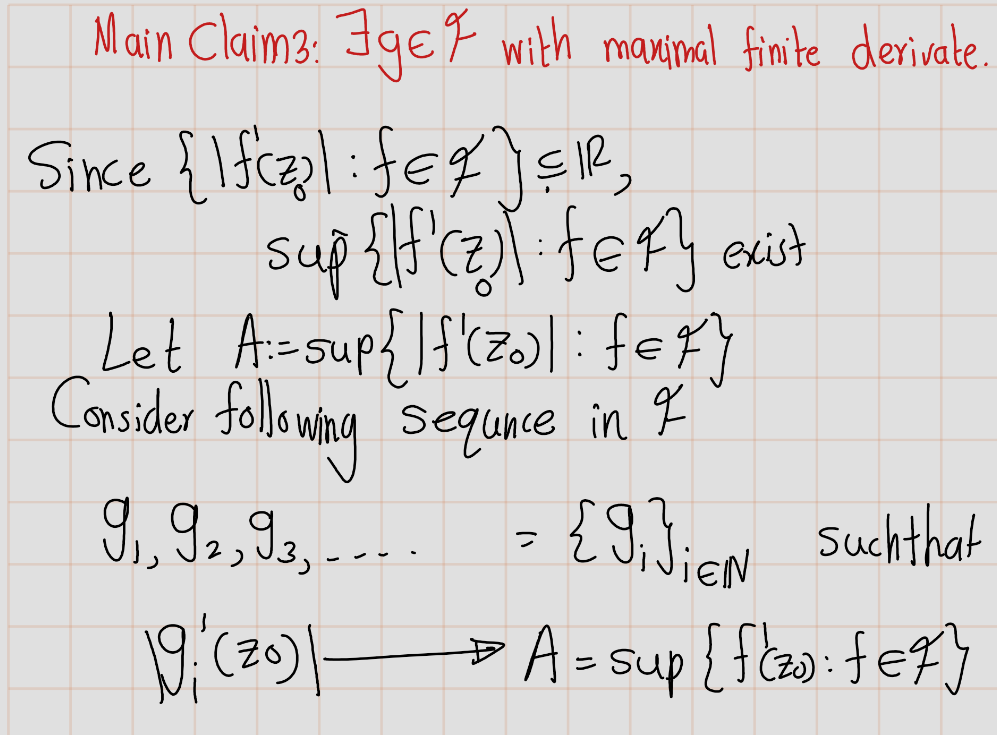 Main Claim3: ∃g∈ℱ with maximal finite derivate.
Since {|f'(z₀)| : f∈ℱ} ⊆ ℝ,
sup{|f'(z₀)| : f∈ℱ} exist
Let A:=sup{|f'(z₀)| : f∈ℱ}
Consider following sequnce in ℱ
g₁, g₂, g₃, ..... = {gᵢ}ᵢ∈ℕ suchthat
|gᵢ'(z₀)| ⟶ A = sup{f'(z₀) : f∈ℱ}